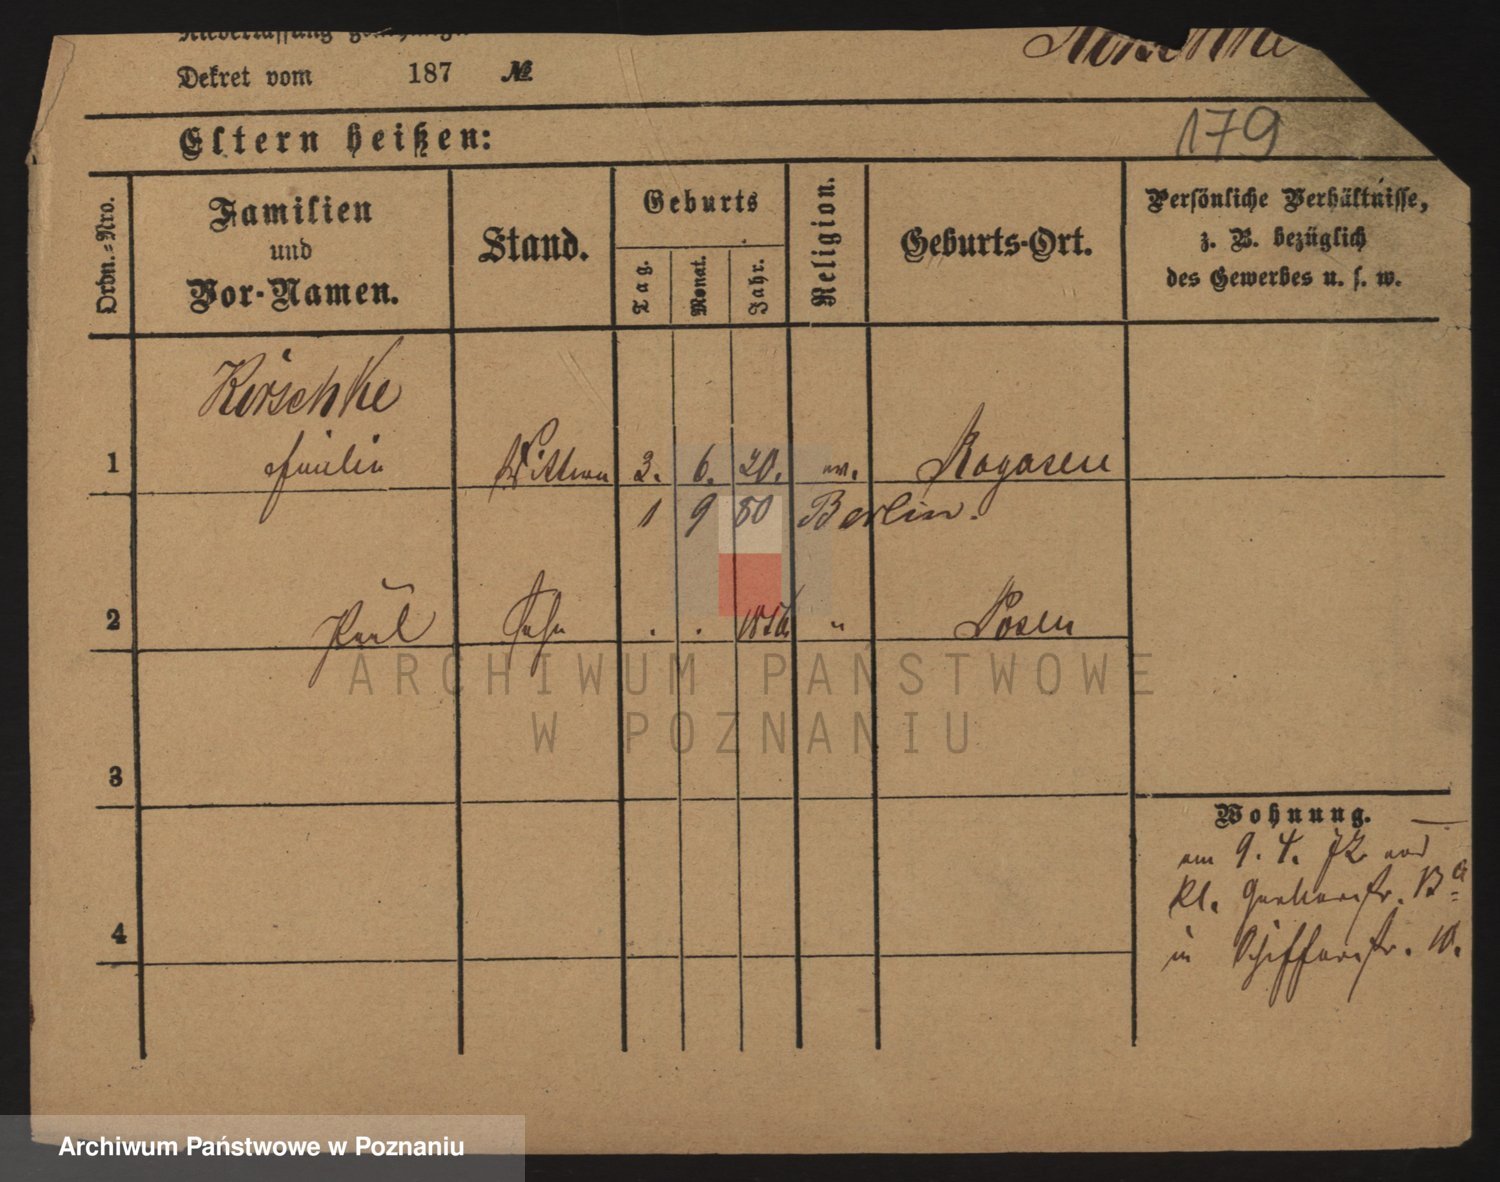 Niederlassung genehmigt
Dekret vom 187 №
179
Eltern heißen:
Ordn.=Nro.
Familien
und
Vor-Namen.
Stand.
Geburts
Tag.
Monat.
Jahr.
Religion.
Geburts-Ort.
Persönliche Verhältnisse,
z. B. bezüglich
des Gewerbes u. s. w.
Kirschke
1 Emilie Wittwe 3. 6. 20. ev. Rogasen
1 9 80 Berlin.
2 Paul Sohn . . " Posen
3
Wohnung.
am 9. 4. 72 von
Kl. Gerberstr.
4
in Schifferstr. 10.
ARCHIWUM PAŃSTWOWE
W POZNANIU
Archiwum Państwowe w Poznaniu